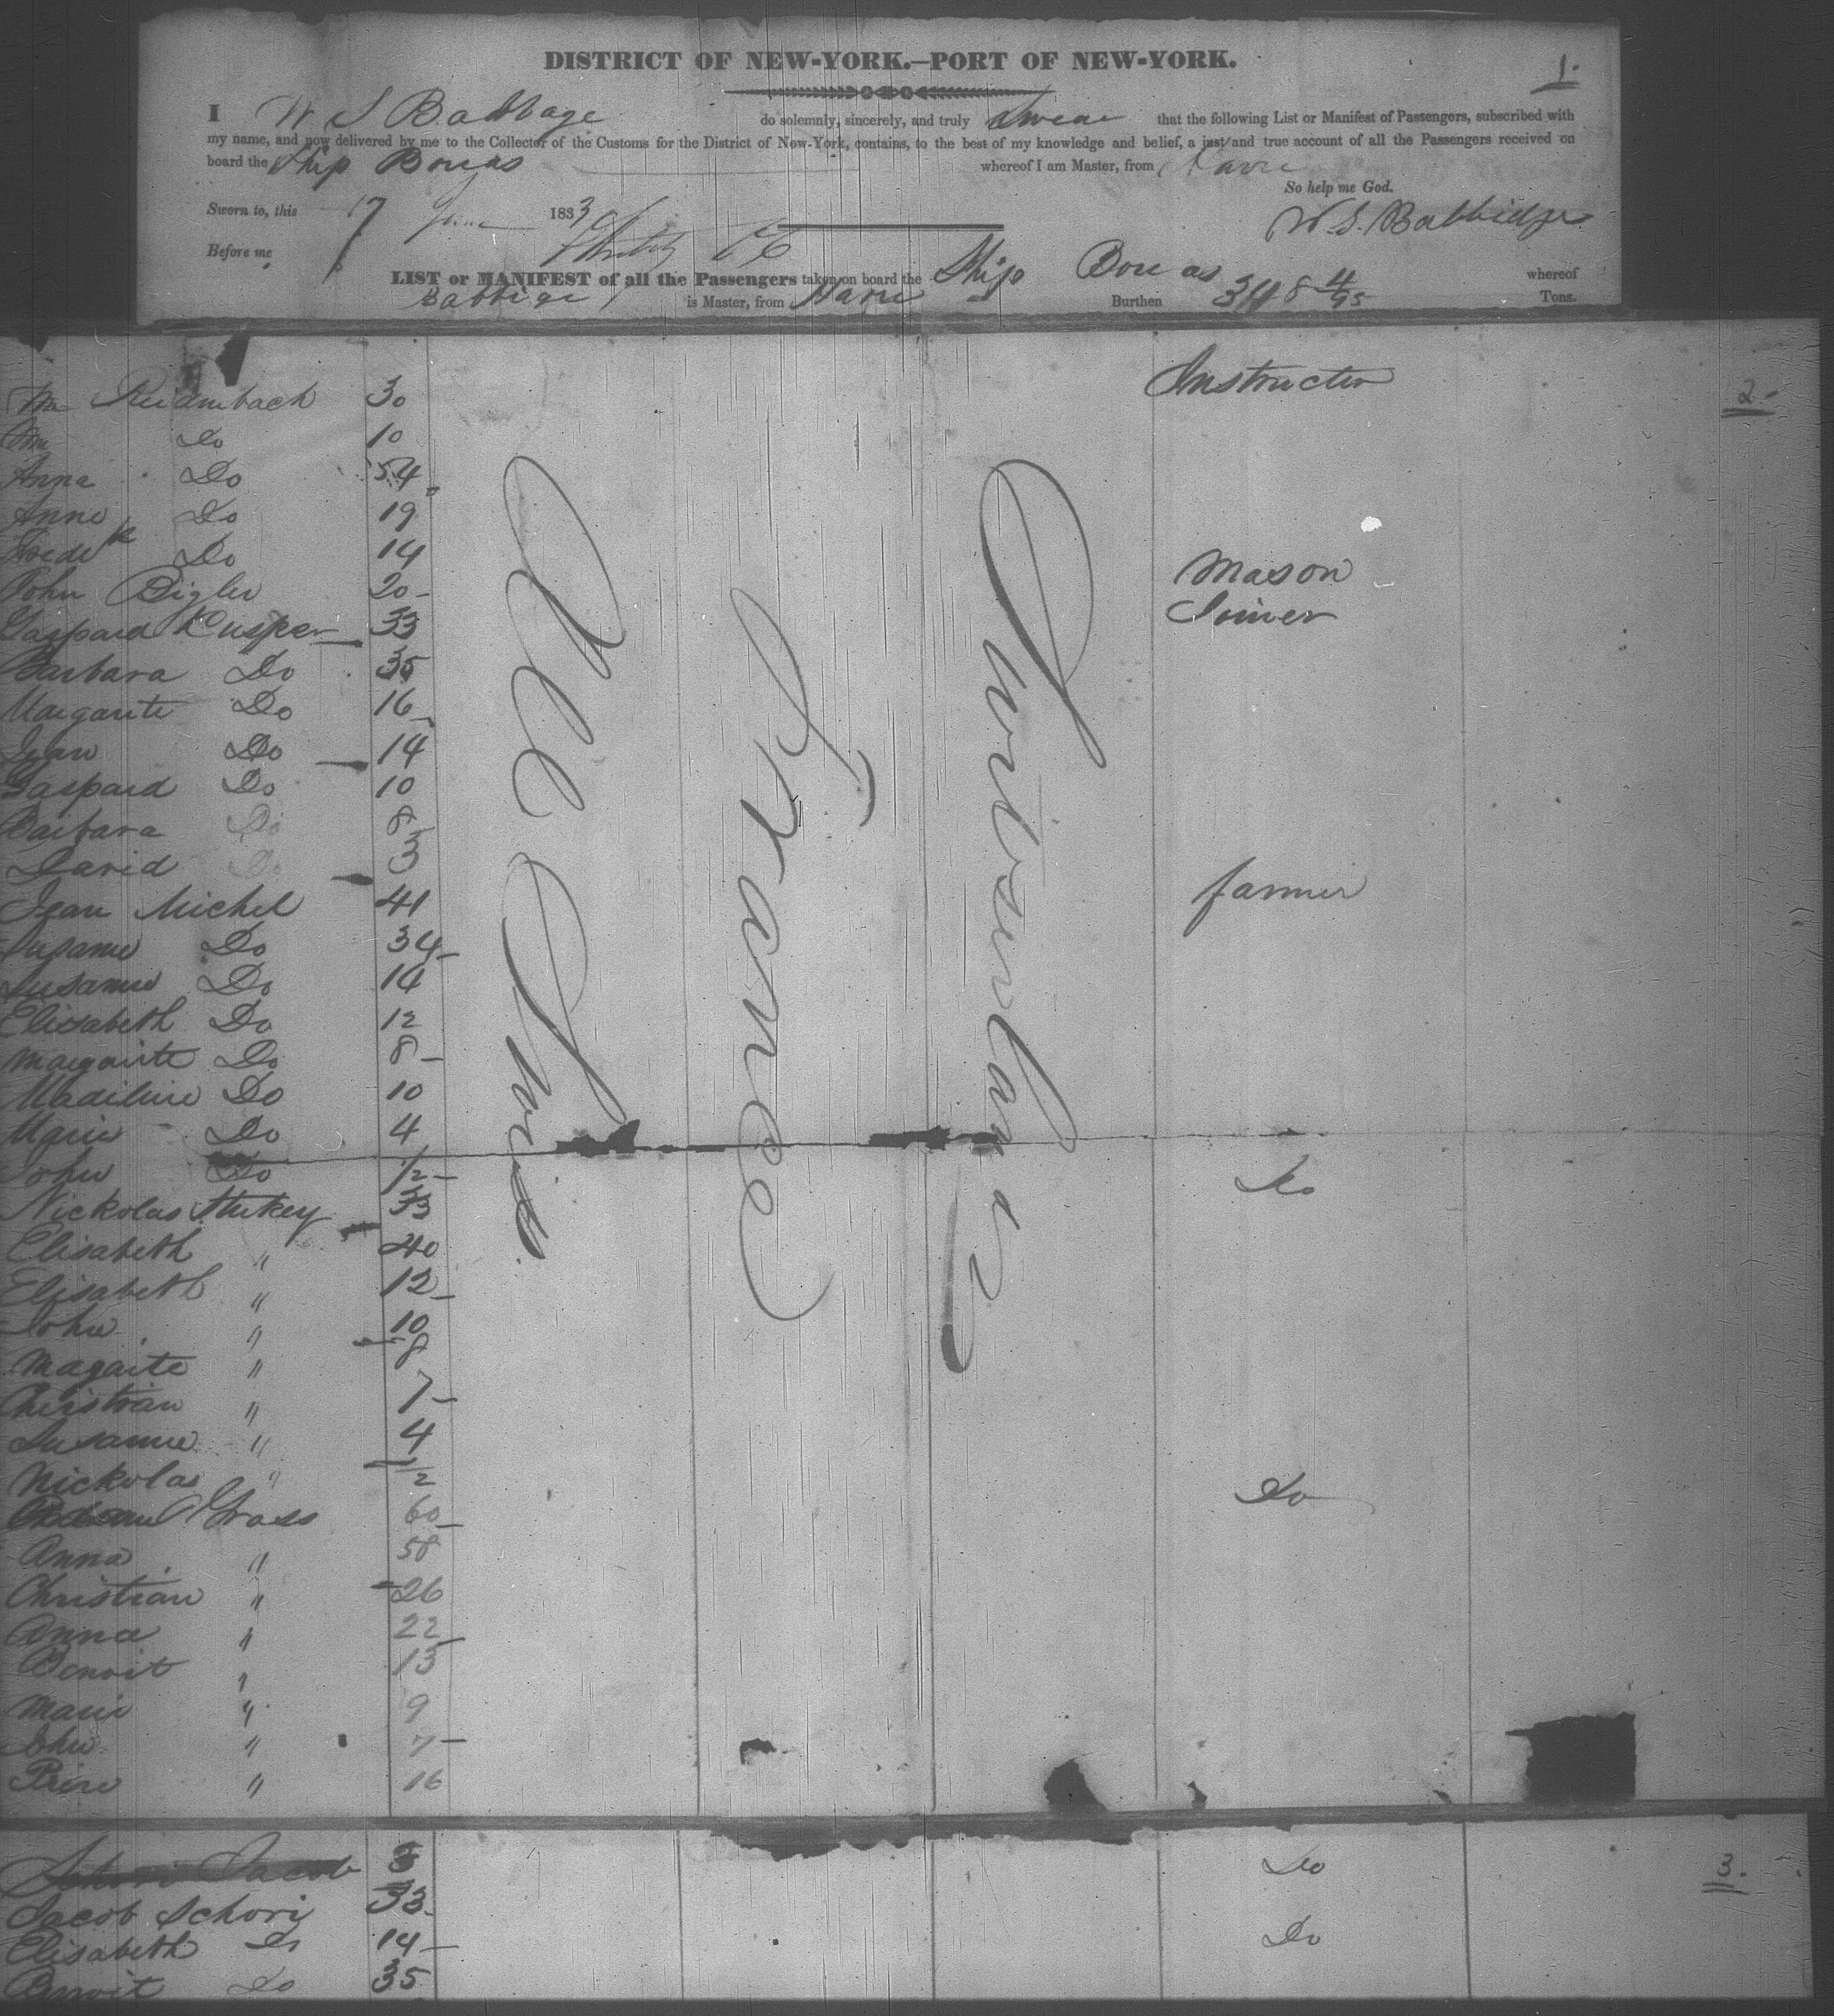 DISTRICT OF NEW-YORK.—PORT OF NEW-YORK.
1.
I W S Babbage do solemnly, sincerely, and truly Swear that the following List or Manifest of Passengers, subscribed with
my name, and now delivered by me to the Collector of the Customs for the District of New-York, contains, to the best of my knowledge and belief, a just and true account of all the Passengers received on
board the Ship Boreas whereof I am Master, from Havre
So help me God.
Sworn to, this 17 June 1833
W. S. Babbidge
Before me
LIST or MANIFEST of all the Passengers taken on board the Ship Boreas whereof
Babbige is Master, from Havre Burthen 348 4/95 Tons.
2.
Wm 30 Instructor
Wm Do 10
Anna Do 54
Anne Do 19
Fredk Do 14
John Bigler 20 Mason
Gaspard Kusper 33 Joiner
Barbara Do 35
Margarite Do 16
Jean Do 14
Gaspard Do 10
Barbara Do 8
David Do 3
Jean Michel 41 farmer
Susanne Do 34
Susanne Do 14
Elisabeth Do 12
Margarite Do 8
Madeline Do 10
Marie Do 4
John Do 1/2
Nickolas Stukey 33 Do
Elisabeth " 40
Elisabeth " 12
John " 10
Magarite " 8
Christian " 7
Susanne " 4
Nickolas " 1/2
Grass 60 Do
Anna " 58
Christian " 26
Anna " 22
Benoit " 13
Marie " 9
John " 7
Piere " 16
All Swiss
France
Switzerland
3.
Schori Jacob Do
Jacob Schori 33
Elisabeth Do 14 Do
Benoit Do 35